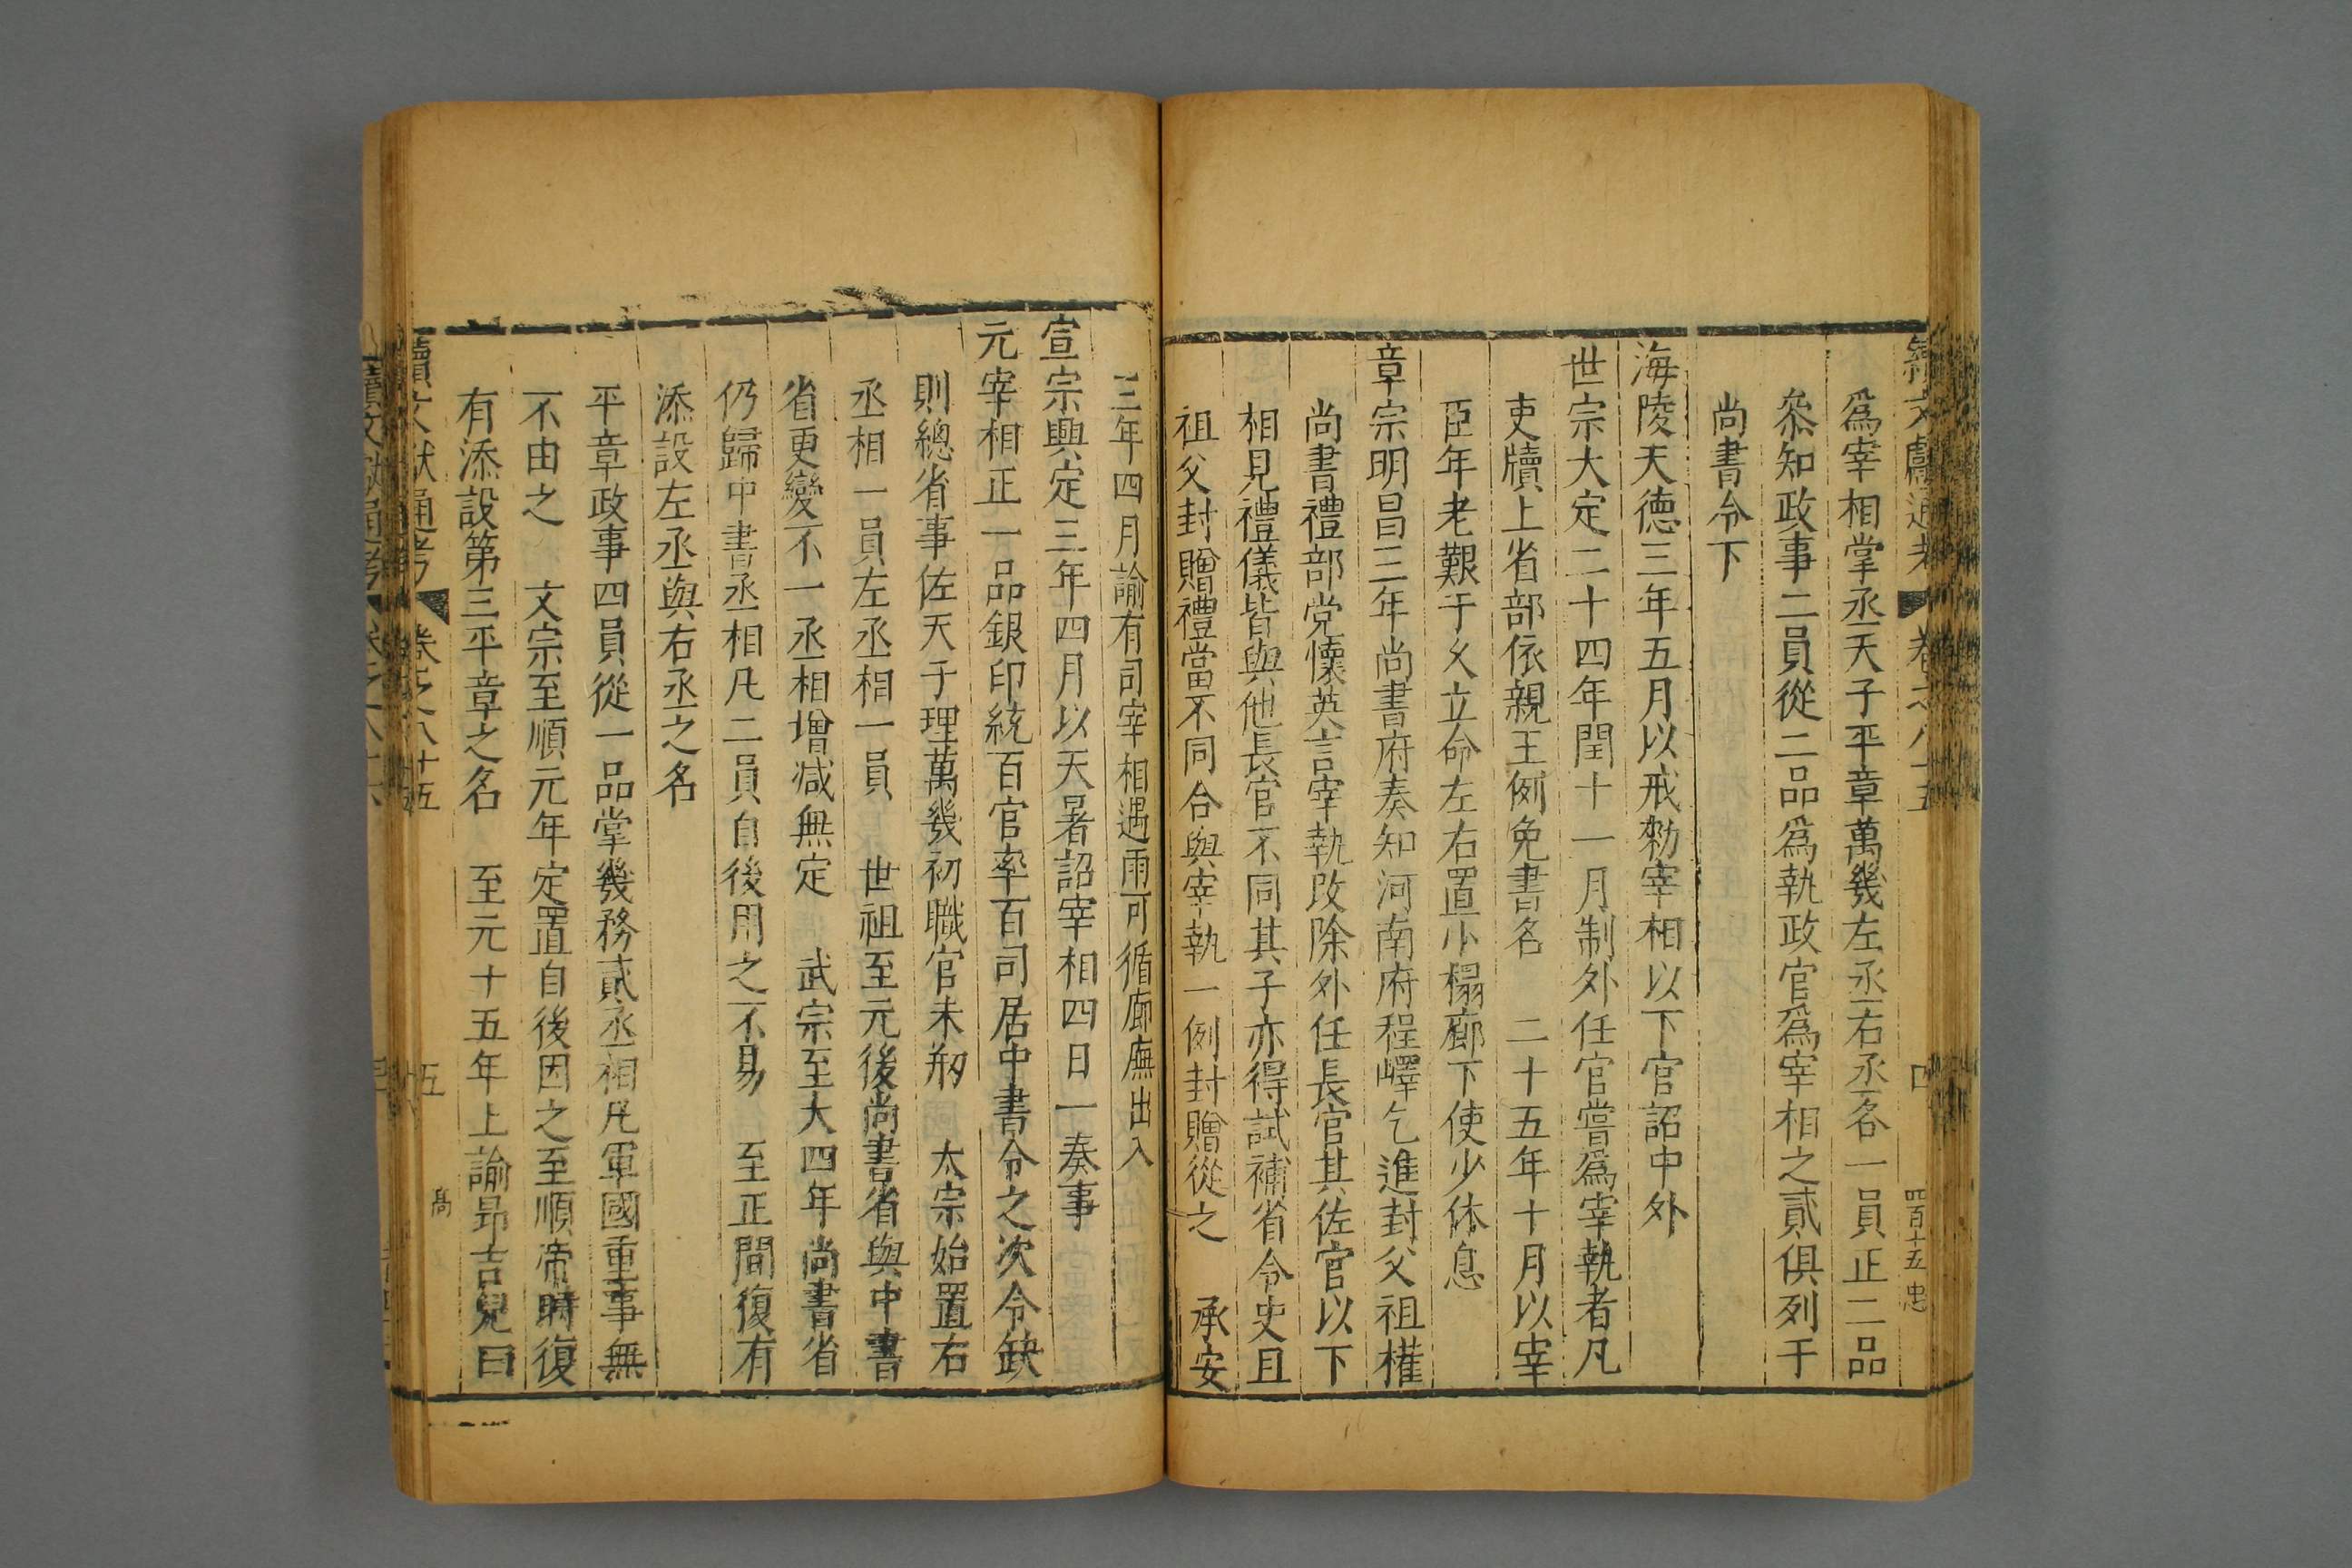 續文獻通考 卷之八十五 四百十五 忠
爲宰相掌丞天子平章萬幾左丞右丞各一員正二品
叅知政事二員從二品爲執政官爲宰相之貳俱列于
尚書令下
海陵天德三年五月以戒勑宰相以下官詔中外
世宗大定二十四年閏十一月制外任官嘗爲宰執者凡
吏牘上省部依親王例免書名 二十五年十月以宰
臣年老艱于久立命左右置小榻廊下使少休息
章宗明昌三年尚書府奏知河南府程嶧乞進封父祖權
尚書禮部党懷英言宰執改除外任長官其佐官以下
相見禮儀皆與他長官不同其子亦得試補省令史且
祖父封贈禮當不同合與宰執一例封贈從之 承安
三年四月諭有司宰相遇雨可循廊廡出入
宣宗興定三年四月以天暑詔宰相四日一奏事
元宰相正一品銀印統百官率百司居中書令之次令缺
則總省事佐天子理萬幾初職官未剏 太宗始置右
丞相一員左丞相一員 世祖至元後尚書省與中書
省更變不一丞相增减無定 武宗至大四年尚書省
仍歸中書丞相凡二員自後用之不易 至正間復有
添設左丞與右丞之名
平章政事四員從一品掌幾務貳丞相凡軍國重事無
不由之 文宗至順元年定置自後因之至順帝時復
有添設第三平章之名 至元十五年上諭昻吉兒曰
續文獻通考 卷之八十五 五 髙